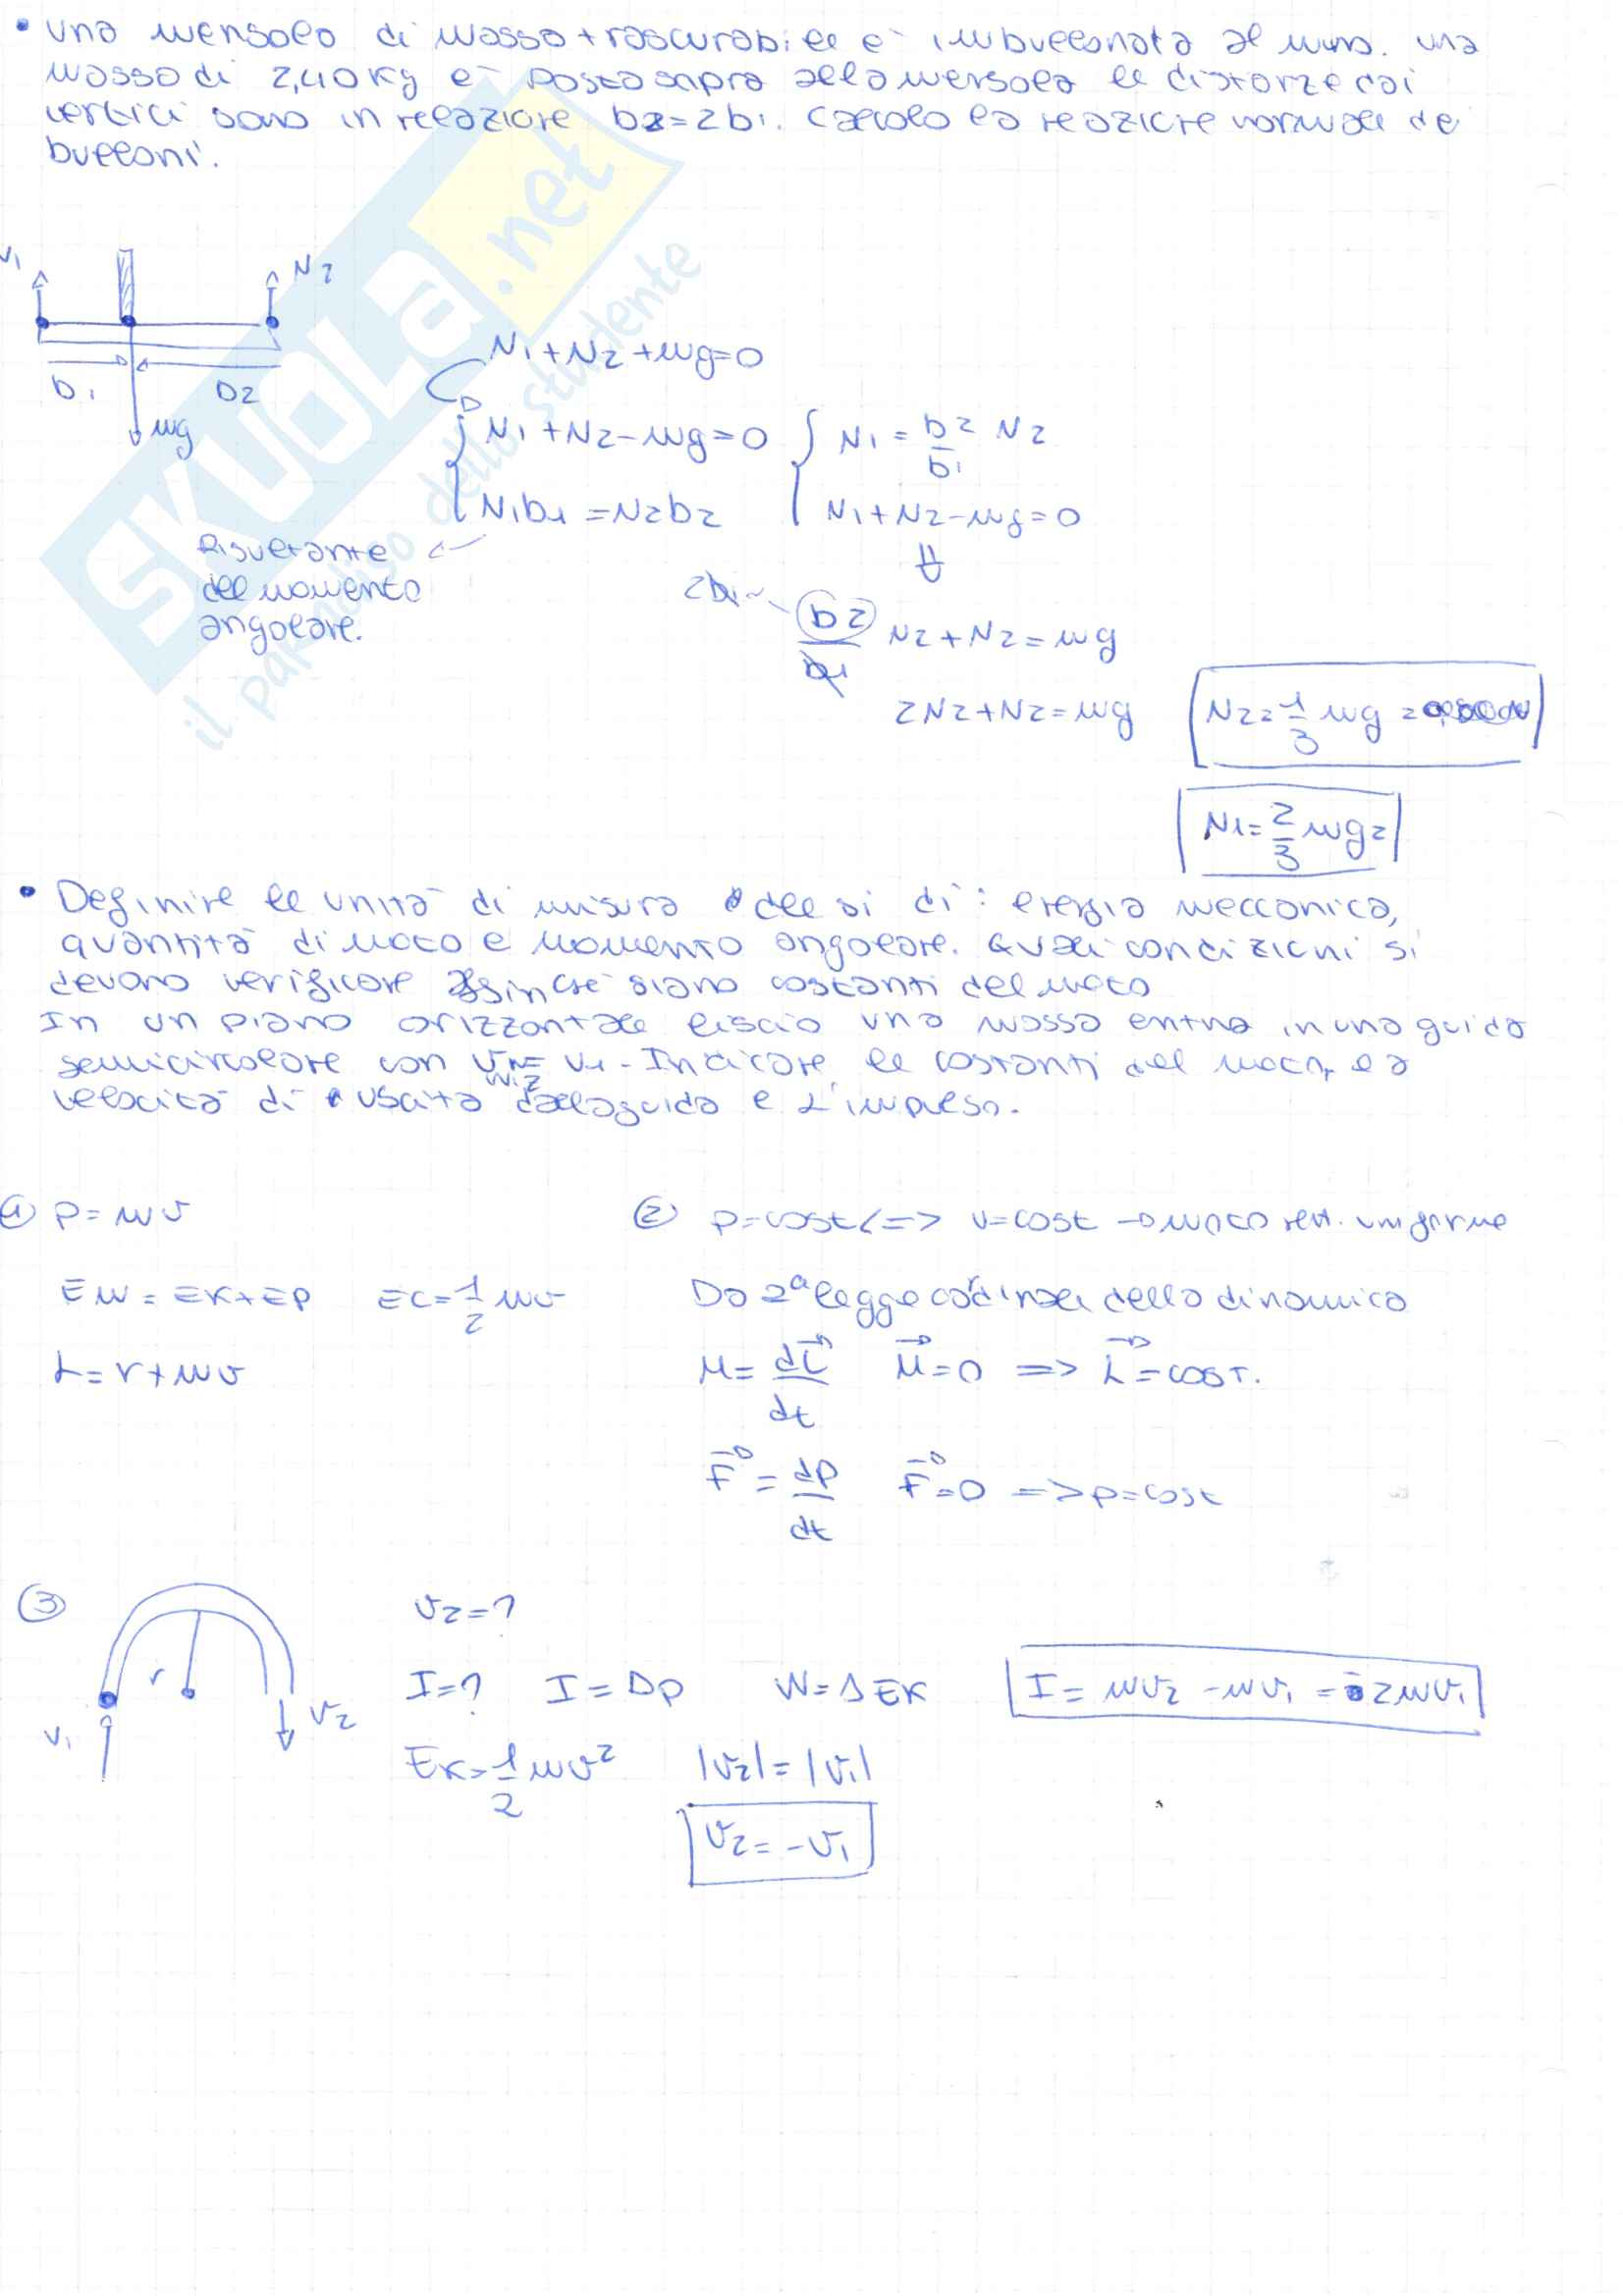 • Una mensola di massa trascurabile è imbullonata al muro. Una
massa di 2,40 Kg è posta sopra alla mensola le distanze dai
vertici sono in relazione b2=2b1. Calcola la reazione normale dei
bulloni.
N1
N2
b1
b2
mg
N1+N2+mg=0
N1+N2-mg=0
N1 = b2/b1 N2
N1b1=N2b2
N1+N2-mg=0
Risultante
del momento
angolare.
2b1
b2/b1 N2+N2=mg
2N2+N2=mg
N2=1/3 mg =
N1=2/3 mg=
• Definire le unità di misura del si di: energia meccanica,
quantità di moto e momento angolare. Quali condizioni si
devono verificare affinché siano costanti del moto
In un piano orizzontale liscio una massa entra in una guida
semicircolare con v = v1. Indicare le costanti del moto, la
velocità di uscita dalla guida e l'impulso.
① P=mv
② p=cost<=> v=cost → moto rett. uniforme
Em=Ek+Ep Ec=1/2 mv
Da 2ª legge cardinale della dinamica
L=r+mv
M=dL/dt M=0 => L=cost.
F=dp/dt F=0 => p=cost
③
r
v1
v2
v2=?
I=? I=Δp W=ΔEk
I=mv2-mv1=-2mv1
Ek=1/2 mv²
|v2|=|v1|
v2=-v1
SKUOLA.net
il paradiso dello studente